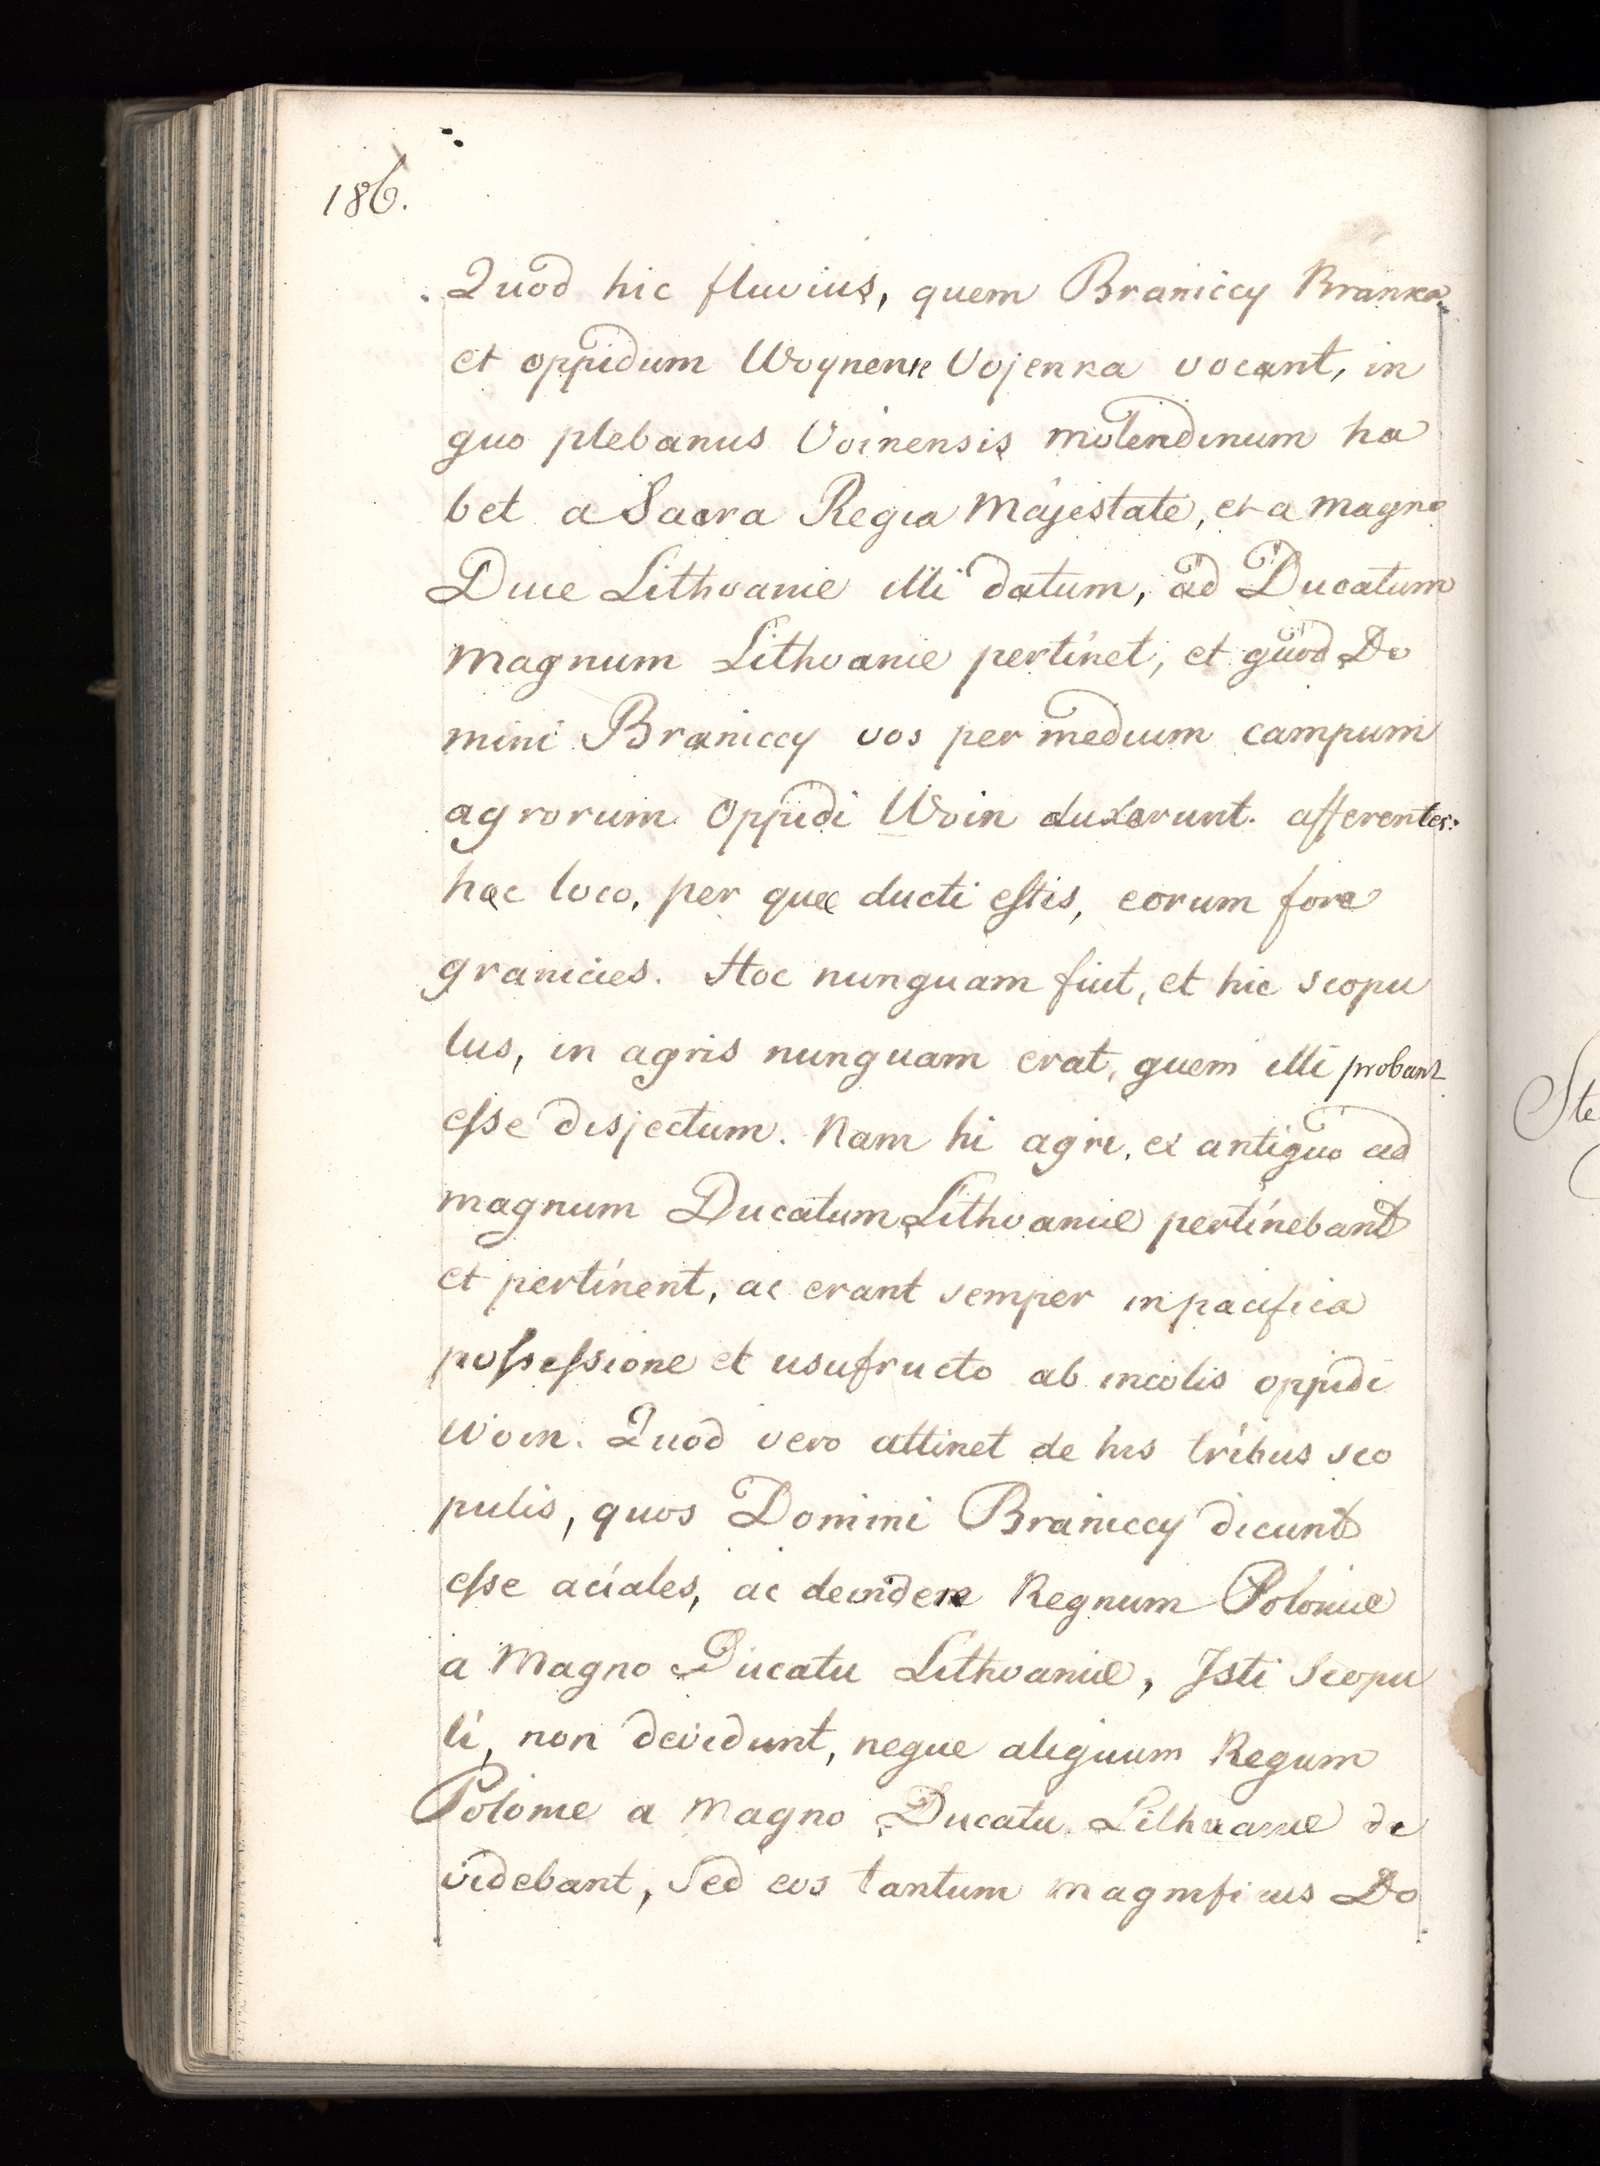 186.
Quod hic fluvius, quem Braniccy Branka
et oppidum Woynense Vojenka vocant, in
quo plebanus Voinensis molendinum ha
bet a Sacra Regia Majestate, et a magno
Duce Lithvanie illi datum, ad Ducatum
magnum Lithvanie pertinet, et quod Do
mini Braniccy vos per medium campum
agrorum Oppidi Woin duxerunt. afferentes:
hac loco, per quae ducti estis, eorum fore
granicies. Hoc nunquam fuit, et hic scopu
lus, in agris nunquam erat, quem illi probant
esse disjectum. Nam hi agri, ex antiquo ad
magnum Ducatum Lithvanie pertinebant
et pertinent, ac erant semper in pacifica
possessione et usufructo ab incolis oppidi
Woin. Quod vero attinet de his tribus sco
pulis, quos Domini Braniccy dicunt
esse aciales, ac devidere Regnum Polonie
a Magno Ducatu Lithvanie, Isti Scopu
li, non devidunt, neque aliquum Regum
Polonie a magno Ducatu Lithvanie de
videbant, Sed eos tantum magnificus Do
Ste